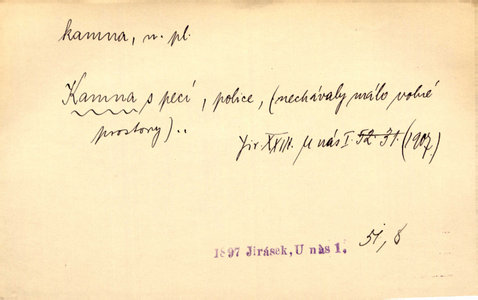 kamna, n. pl.
Kamna s pecí, police, (nechávaly málo volné
prostory)..
Jir. XXIII. U nás I. 52. 31. (1907)
1897 Jirásek, U nás 1. 51, 8